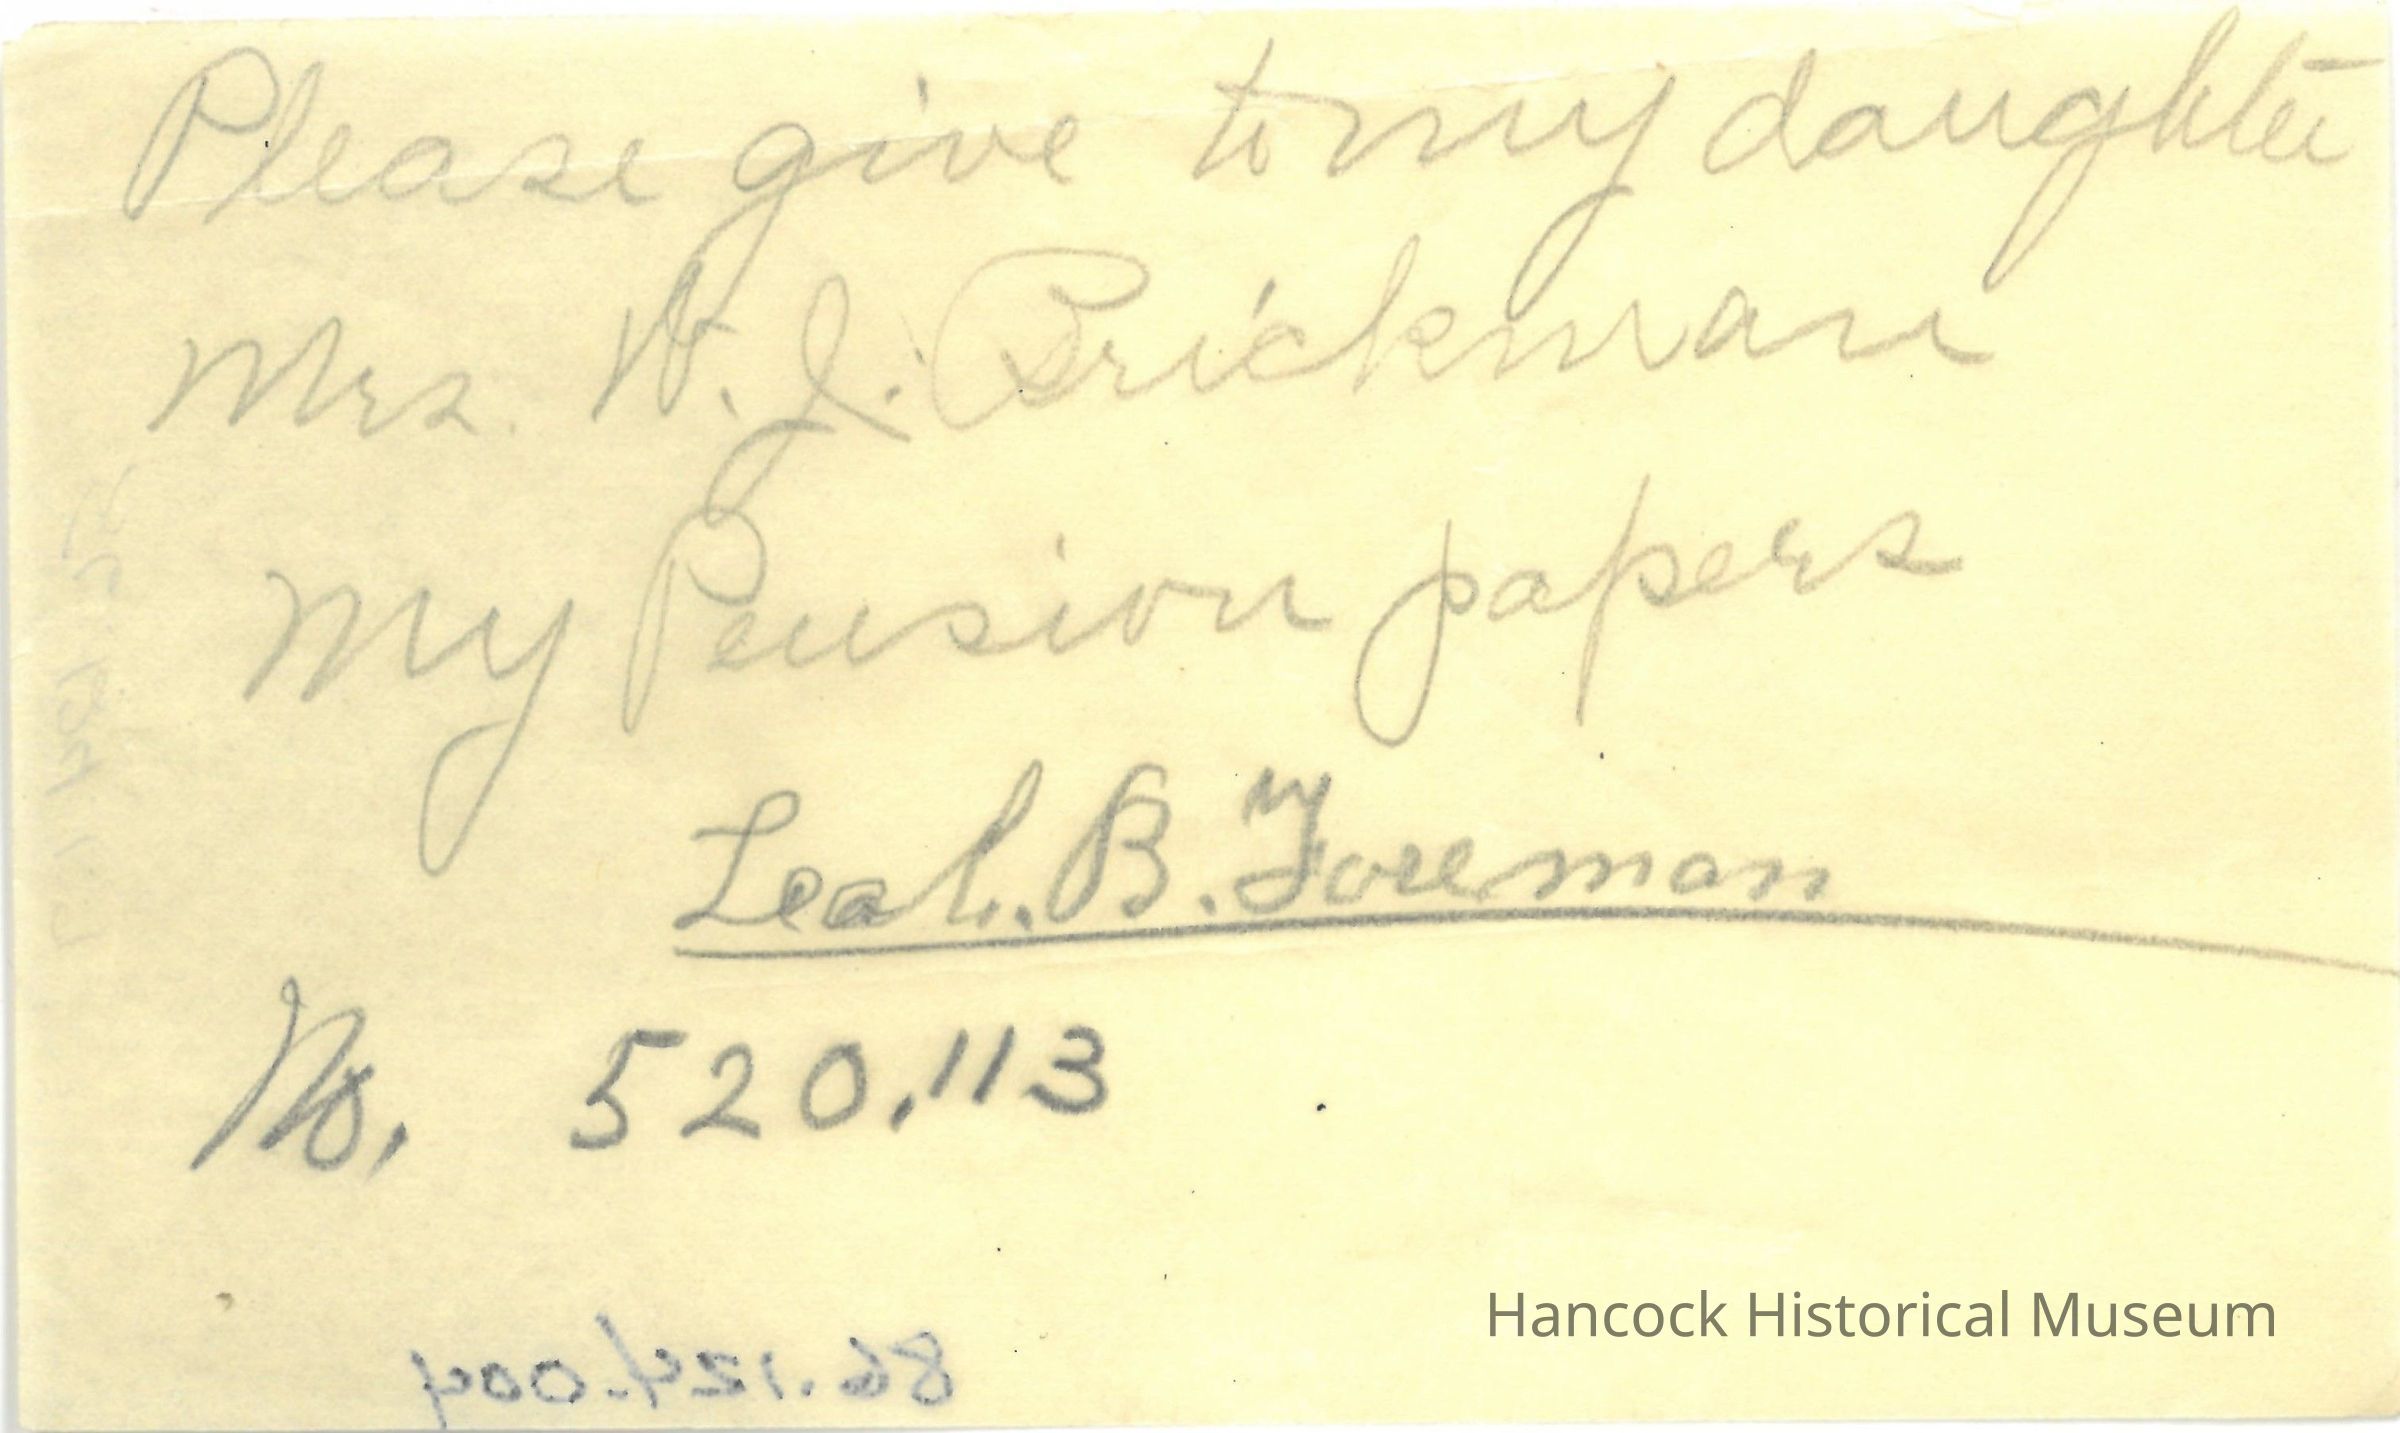 Please give to my daughter
Mrs. W. J. Brickman
My Pension papers
Leah. B. Foreman
No. 520,113
86.124.004
Hancock Historical Museum